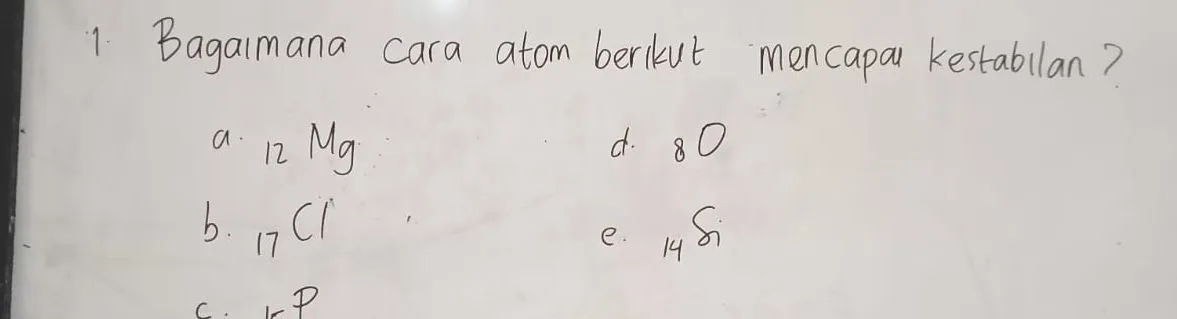 1. Bagaimana cara atom berikut mencapai kestabilan?
a. 12 Mg
d. 8 O
b. 17 Cl
e. 14 Si
c. P